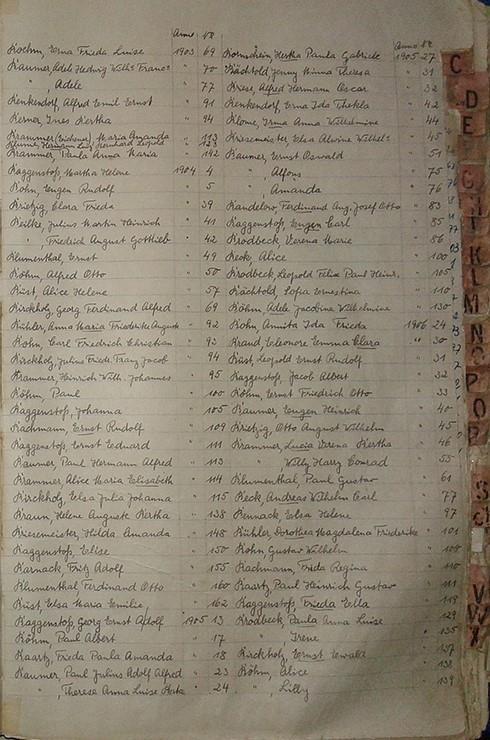 Anno № Anno №
Koehm, Erna Frieda Luise 1903 69
Kaumer, Adele Hedwig " 70
" , Adele " 77
Kenkendorf, Alfred Emil Ernst " 91
Kerner Ines Hertha " 94
Krammer, Maria Amanda " 113
Krammer, Paula Anna Maria " 142
Kaggenstoß, Martha Helene 1904 4
Kohn, Eugen Rudolf " 5
Kriehig, Clara Frieda " 39
Keilke, Julius Martin Heinrich " 41
" , Friedrich August Gottlieb " 42
Klumenthal, Ernst " 49
Köhm, Alfred Otto " 50
Küst, Alice Helene " 57
Kirckholz, Georg Ferdinand Alfred " 69
Kühler, Anna Maria Friederike Auguste " 92
Kohn, Carl Friedrich Christian " 93
Kirckholz, Julius Friedr. Franz Jacob " 94
Krammer, Heinrich Wilh. Johannes " 95
Köhm Paul " 100
Kaggenstoß, Johanna " 105
Kachmann, Ernst Rudolf " 109
Kaggenstoß, Ernst Eduard " 111
Kaumer, Paul Hermann Alfred " 113
Krammer, Alice Maria Elisabeth " 114
Kirckholz, Elsa Julia Johanna " 115
Kraun, Helene Auguste Hertha " 138
Kriesemeister, Hilda Amanda " 148
Kaggenstoß, Elise " 150
Karnack, Fritz Adolf " 155
Klumenthal, Ferdinand Otto " 160
Küst, Elsa Maria Emilie, " 162
Kaggenstoß, Georg Ernst Adolf 1905 13
Köhm, Paul Albert " 17
Kaartz, Frieda Paula Amanda " 18
Kaumer, Paul Julius Adolf Alfred " 23
" , Therese Anna Luise " 24
Kornschein, Hertha Paula Gabriele 1905 27
Kächtold, Jenny Minna Theresa " 31
Kriese, Alfred Hermann Oscar " 32
Kenkendorf, Erna Ida Thekla " 42
Klome, Irma Anna Wilhelmine " 44
Kriesemeister, Elsa Alwine Wilhel. " 45
Kaumer, Ernst Oswald " 51
" , Alfons " 75
" , Amanda " 76
Kandelow, Ferdinand Aug. Josef Otto " 83
Kaggenstoß, Eugen Carl " 85
Krodbeck, Verena Marie " 86
Keck, Alice " 100
Krodbeck, Leopold Felix Paul Heinr. " 105
Kächtold, Sofia Ernestina " 110
Köhm, Adele Jacobina Wilhelmine " 130
Kohn Annita Ida Frieda 1906 24
Kraud, Eleonore Emma Clara " 30
Küst, Leopold Ernst Rudolf " 31
Kaggenstoß, Jacob Albert " 32
Köhm, Ernst Friedrich Otto " 33
Kaumer, Eugen Heinrich " 40
Kriehig, Otto August Wilhelm " 45
Krammer, Lucia Verena Hertha " 46
" , Willy Harry Conrad " 55
Klumenthal, Paul Gustav " 61
Keck, Andreas Wilhelm Carl " 77
Kennack, Elsa Helene " 97
Kühler, Dorothea Magdalena Friederike " 101
Kohn Gustav Wilhelm " 108
Kachmann, Frida Regina " 110
Kaartz, Paul Heinrich Gustav " 111
Kaggenstoß, Frieda Ella " 119
Krodbeck, Paula Anna Luise " 129
" , Irene " 135
Kirckholz, Ernst Ewald " 137
Köhm, Alice " 138
" , Lilly " 139
C
D
E
G
H
I
K
L
M
N
O
P
R
S
V
W